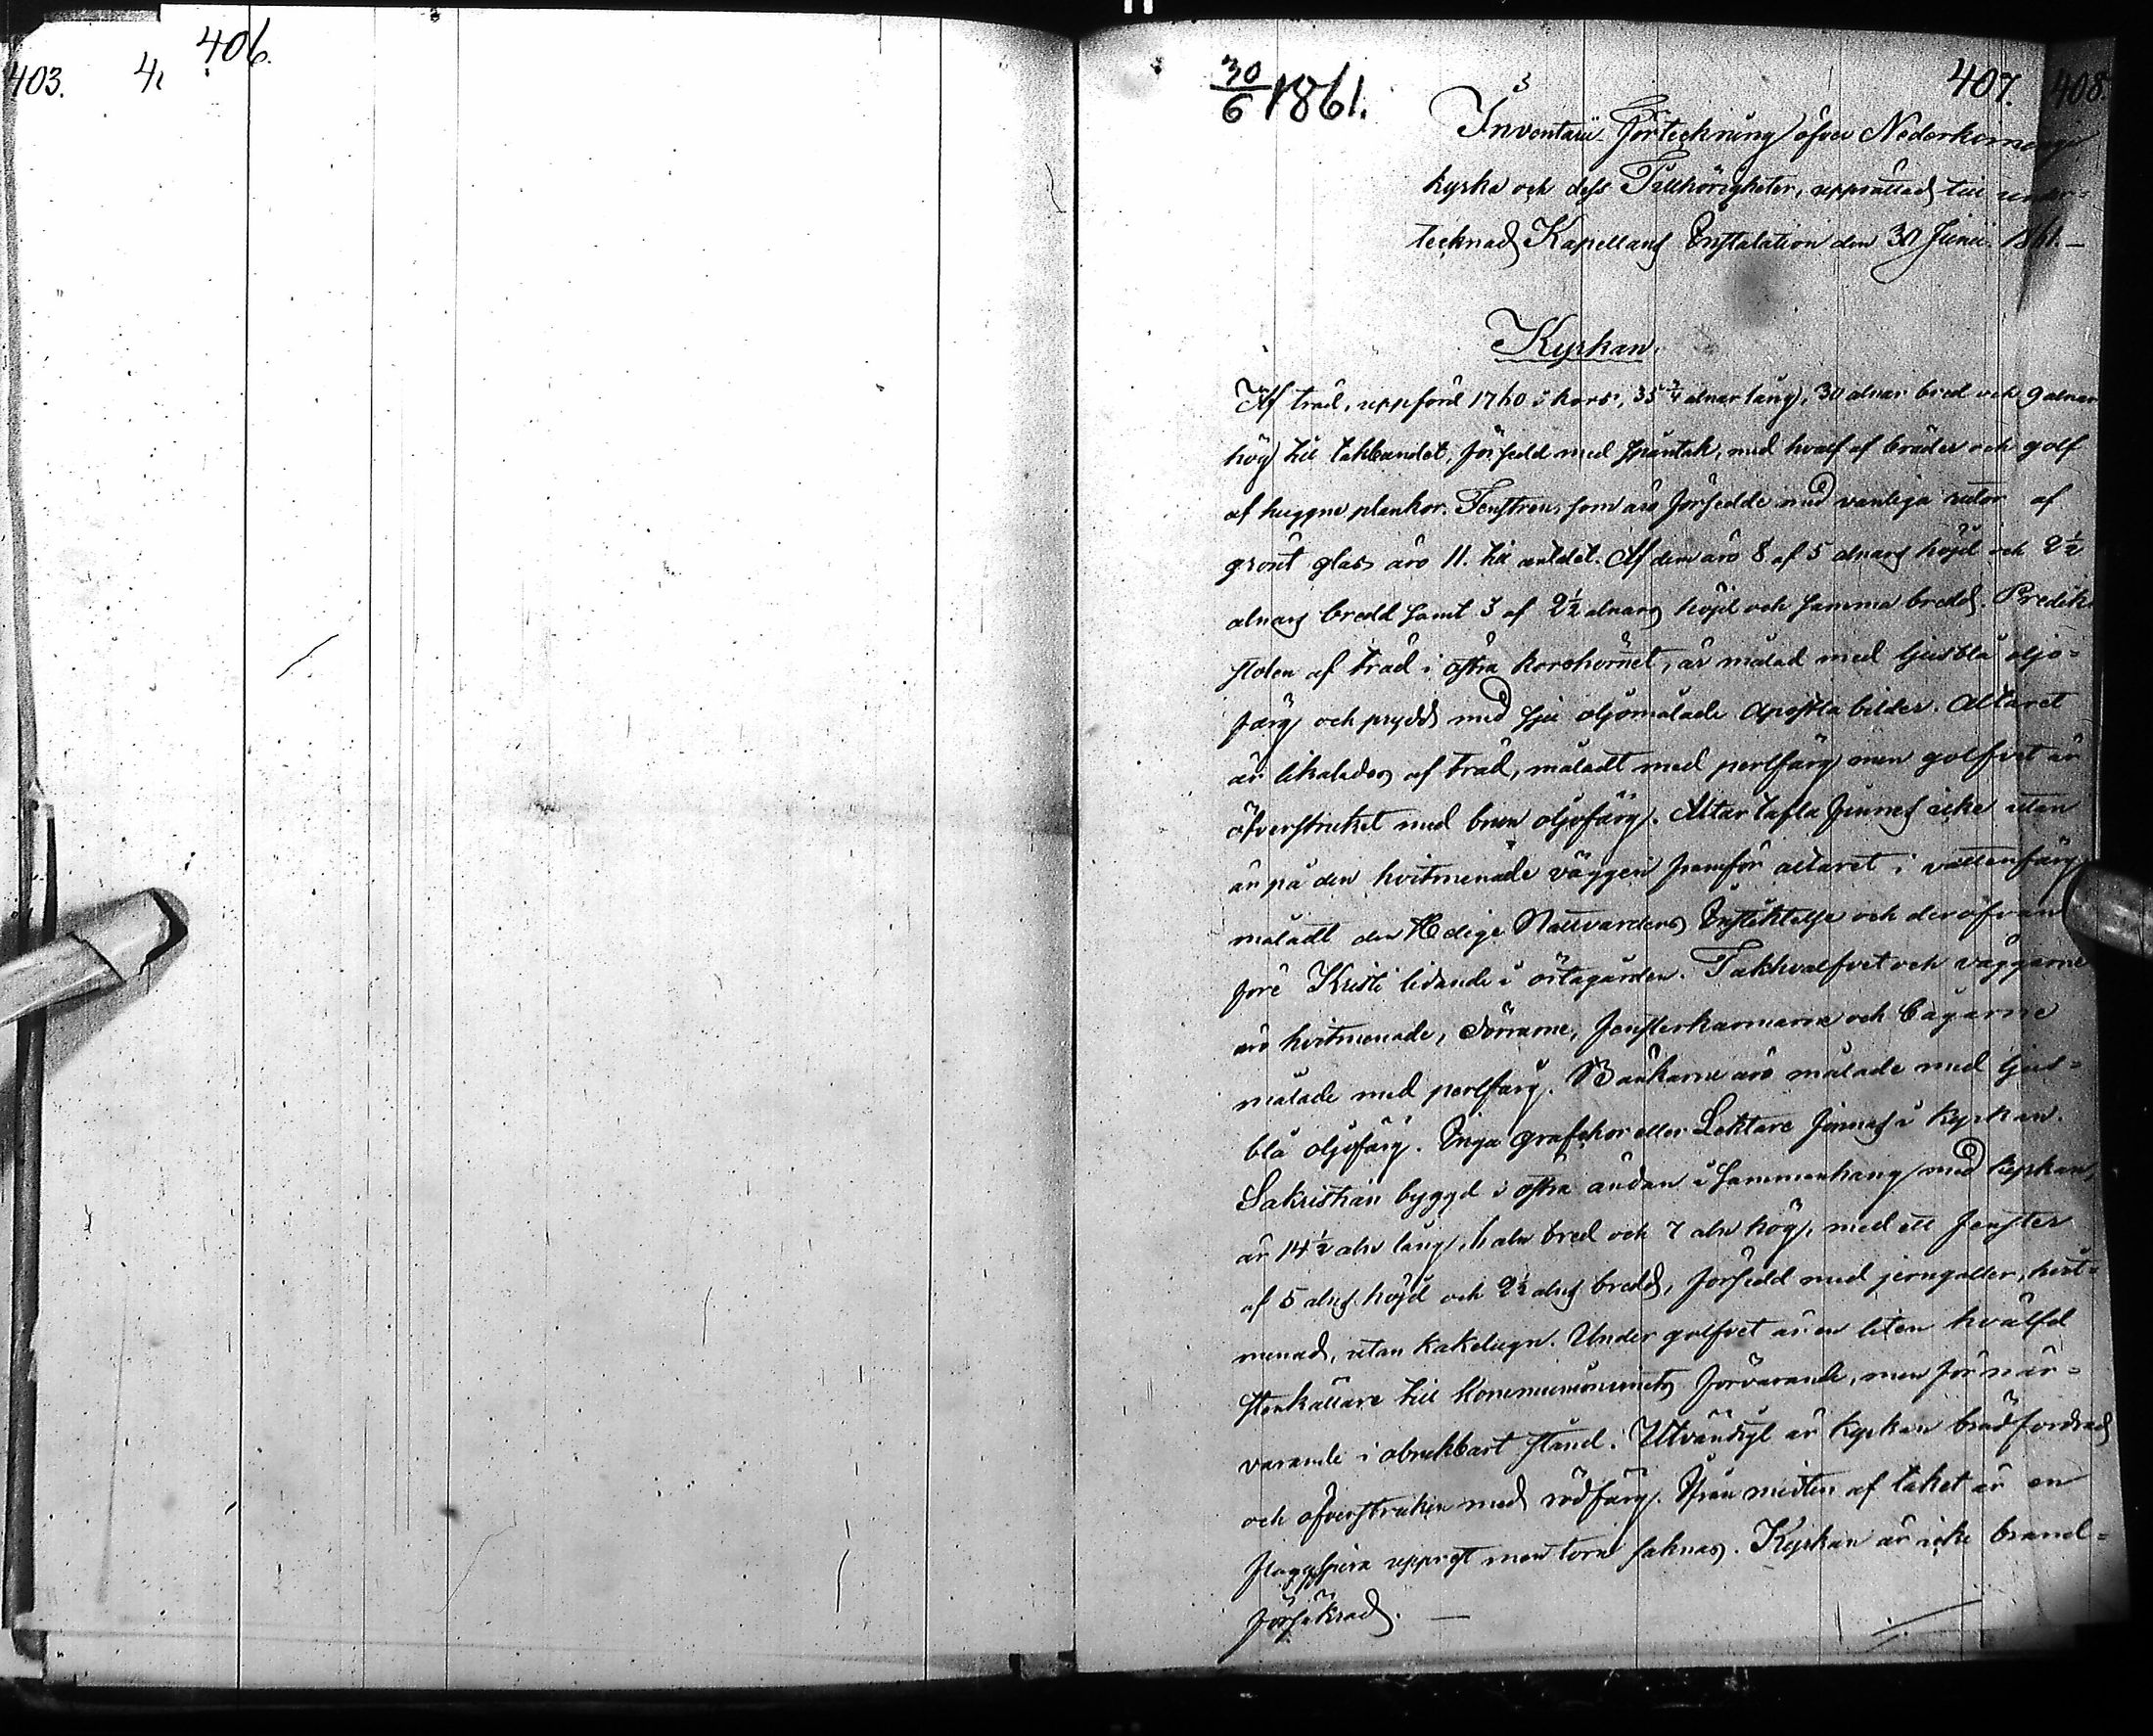 403.
406.
407.
408.
30/6 1861.
Inventarii Förteckning öfver Nederkorsnäs
kyrka och dess Tillhörigheter, upprättad till under-
tecknad Kapellans Installation den 30 Junii 1861.—
Kyrkan.
Af träd, uppförd 1760 i kors, 35 3/4 alnar lång, 30 alnar bred och 9 alnar
hög till takbandet, försedd med spåntak, med hvalf af bräder och golf
af huggne plankor. Fenstren, som äro försedde med vanliga rutor af
grönt glas äro 11. till antalet. Af dem äro 8 af 5 alnars höjd och 2 1/2
alnars bredd samt 3 af 2 1/2 alnars höjd och samma bredd. Predik-
stolen af träd i östra korshörnet, är målad med ljusblå oljo-
färg och prydd med sju oljomålade Apostla bilder. Altaret
är likaledes af träd, måladt med perlfärg men golfvet är
öfverstruket med brun oljofärg. Altartafla finnes icke utan
är på den hvitmenade väggen framför altaret i vattenfärg
måladt den Helige Nattvardens Instiktelse och derofvan
före Kristi lidande i örtagården. Takhvalfvet och väggarne
äro hvitmenade, Dörrarne, fensterkarmarne och bågarne
målade med perlfärg. Bänkarne äro målade med ljus-
blå oljofärg. Inga grafchor eller Lektare finnas i kyrkan.
Sakristian byggd i östra ändan i sammanhang med kyrkan,
är 14 1/2 aln lång, aln bred och 7 aln hög, med ett fenster
af 5 alns höjd och 2 1/2 alns bredd, försedd med jerngaller, hvit-
menad, utan kakelugn. Under golfvet är en liten hvälfd
stenkällare till kommunionvinets förvarande, men för när-
varande i obrukbart stånd. Utvändigt är kyrkan brädfordrad
och öfverstruken med rödfärg. Ifrån midten af taket är en
flaggspira upprest men torn saknas. Kyrkan är icke brand-
försäkrad. —